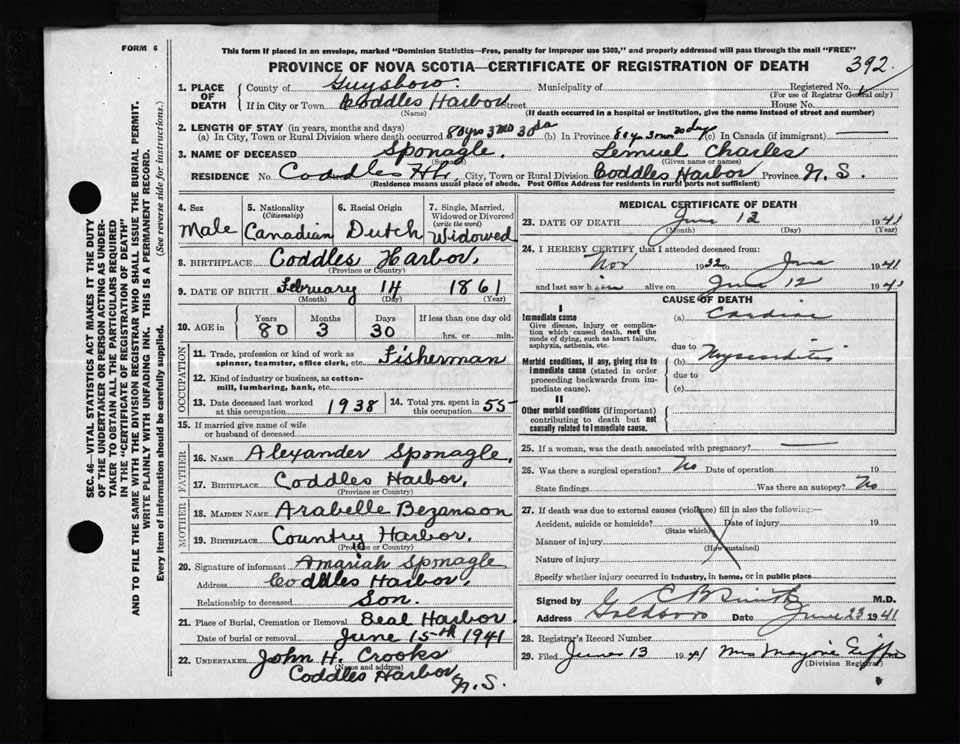 FORM 6
This form if placed in an envelope, marked "Dominion Statistics—Free, penalty for improper use $300," and properly addressed will pass through the mail "FREE"
PROVINCE OF NOVA SCOTIA—CERTIFICATE OF REGISTRATION OF DEATH
392
1. PLACE OF DEATH
County of Guysboro. Municipality of Registered No.
(For use of Registrar General only)
If in City or Town Coddles Harbor Street House No.
(Name) (If death occurred in a hospital or institution, give the name instead of street and number)
2. LENGTH OF STAY (in years, months and days)
(a) In City, Town or Rural Division where death occurred 80 yrs 3 mo 30 da (b) In Province 80 yrs 3 mos 30 days (c) In Canada (if immigrant) —
3. NAME OF DECEASED Sponagle. Lemuel Charles
(Given name or names)
RESIDENCE No Coddles Hr. City, Town or Rural Division Coddles Harbor Province N.S.
(Residence means usual place of abode. Post Office Address for residents in rural parts not sufficient)
4. Sex Male
5. Nationality (Citizenship) Canadian
6. Racial Origin Dutch
7. Single, Married, Widowed or Divorced (write the word) Widowed
8. BIRTHPLACE Coddles Harbor,
(Province or Country)
9. DATE OF BIRTH February 14 1861
(Month) (Day) (Year)
10. AGE in Years 80 Months 3 Days 30 If less than one day old
hrs. or min.
OCCUPATION
11. Trade, profession or kind of work as spinner, teamster, office clerk, etc. Fisherman
12. Kind of industry or business, as cotton-mill, lumbering, bank, etc.
13. Date deceased last worked at this occupation 1938
14. Total yrs. spent in this occupation 55
15. If married give name of wife or husband of deceased
FATHER
16. NAME Alexander Sponagle,
17. BIRTHPLACE Coddles Harbor,
(Province or Country)
MOTHER
18. MAIDEN NAME Arabelle Bezanson
19. BIRTHPLACE Country Harbor,
(Province or Country)
20. Signature of informant Amariah Sponagle
Address Coddles Harbor,
Relationship to deceased Son.
21. Place of Burial, Cremation or Removal Seal Harbor
Date of burial or removal June 15th 1941
22. UNDERTAKER John H. Crooks
(Name and address)
Coddles Harbor N.S.
MEDICAL CERTIFICATE OF DEATH
23. DATE OF DEATH June 12 1941
(Month) (Day) (Year)
24. I HEREBY CERTIFY that I attended deceased from:
Nov 1932 to June 1941
and last saw him alive on June 12 1941
CAUSE OF DEATH
I
Immediate cause
Give disease, injury or complication which caused death, not the mode of dying, such as heart failure, asphyxia, asthenia, etc.
(a) Cardiac
due to
Morbid conditions, if any, giving rise to immediate cause (stated in order proceeding backwards from immediate cause).
(b) Myocarditis
due to
(c)
II
Other morbid conditions (if important) contributing to death but not causally related to immediate cause.
25. If a woman, was the death associated with pregnancy? —
26. Was there a surgical operation? No Date of operation 19
State findings Was there an autopsy? No
27. If death was due to external causes (violence) fill in also the following:—
Accident, suicide or homicide? Date of injury 19
(State which)
Manner of injury
(How sustained)
Nature of injury
Specify whether injury occurred in industry, in home, or in public place
Signed by C B Smith M.D.
Address Goldboro Date June 23 1941
28. Registrar's Record Number
29. Filed June 13 1941 Mrs Marjorie
(Division Registrar)
SEC. 46—VITAL STATISTICS ACT MAKES IT THE DUTY
OF THE UNDERTAKER OR PERSON ACTING AS UNDER-
TAKER TO OBTAIN ALL THE PARTICULARS REQUIRED
IN THE "CERTIFICATE OF REGISTRATION OF DEATH"
AND TO FILE THE SAME WITH THE DIVISION REGISTRAR WHO SHALL ISSUE THE BURIAL PERMIT.
WRITE PLAINLY WITH UNFADING INK. THIS IS A PERMANENT RECORD.
Every item of information should be carefully supplied. (See reverse side for instructions.)